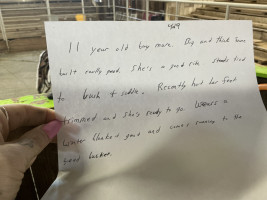 429
11 year old bay mare. Big and thick
built really good. She's a good ride stands tied
to brush + saddle. Recently had her feet
trimmed and she's ready to go. Wears a
winter blanket good and comes running to the
feed bucket.